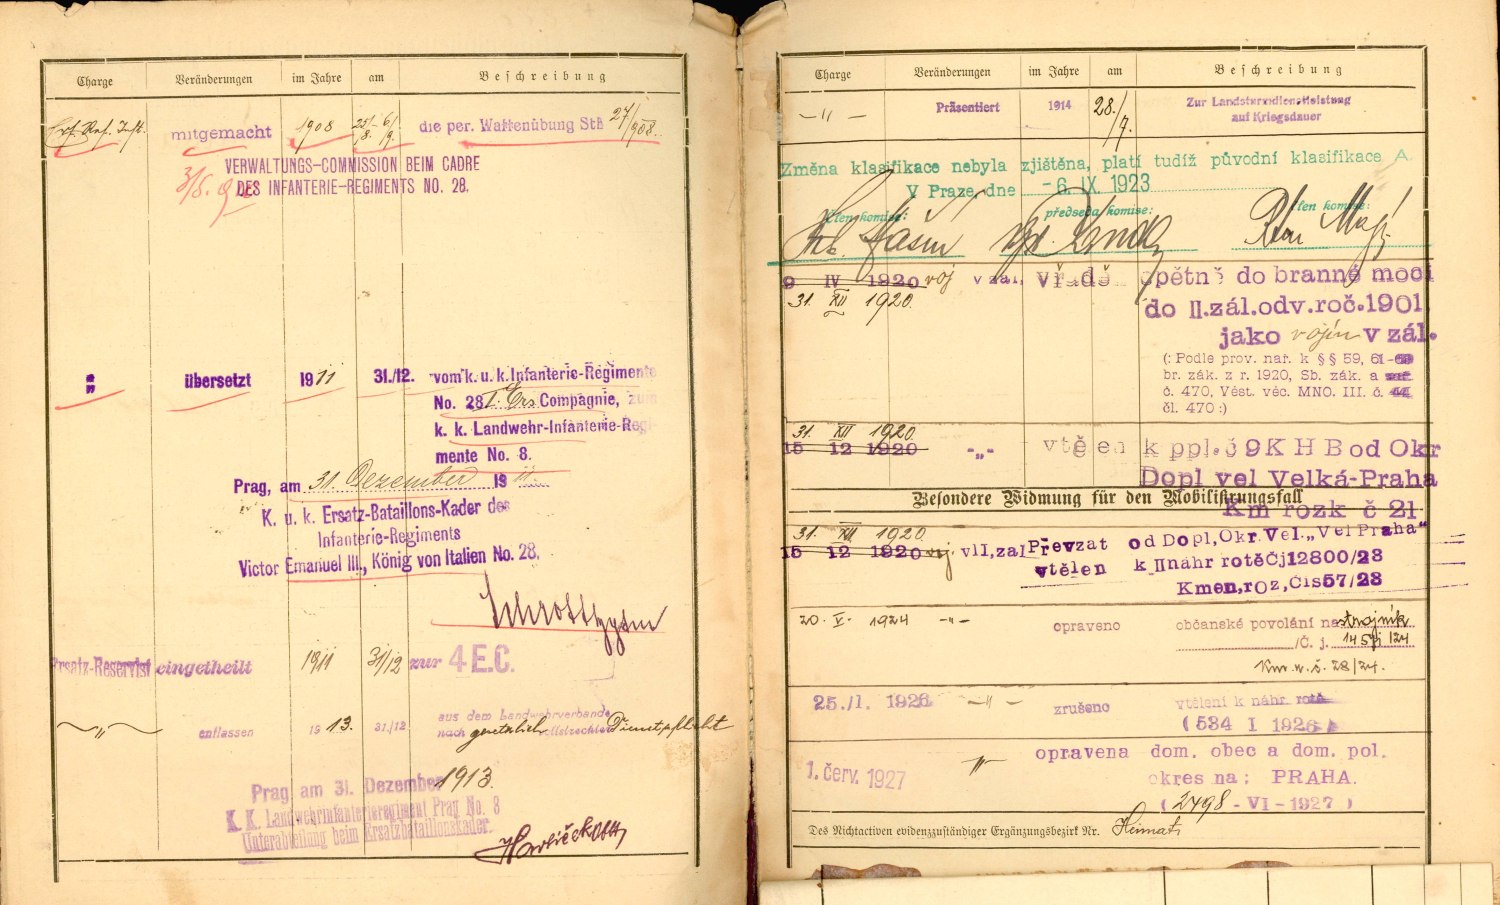 Charge Veränderungen im Jahre am Beschreibung
Ers. Res. Inft. mitgemacht 1908 25/8 - 6/9 die per. Waffenübung StB 27/908.
VERWALTUNGS-COMMISSION BEIM CADRE
DES INFANTERIE-REGIMENTS NO. 28.
" übersetzt 1911 31./12. vom k. u. k. Infanterie-Regimente
No. 28 1. Ers Compagnie, zum
k. k. Landwehr-Infanterie-Regi-
mente No. 8.
Prag, am 31. Dezember 1911.
K. u. k. Ersatz-Bataillons-Kader des
Infanterie-Regiments
Victor Emanuel III., König von Italien No. 28.
Ersatz-Reservist eingetheilt 1911 31/12 zur 4 E.C.
" entlassen 1913. 31./12 aus dem Landwehrverbande
nach gesetzlich vollstreckter Dienstpflicht
Prag am 31. Dezember 1913.
K. K. Landwehrinfanterieregiment Prag No. 8
Unterabteilung beim Ersatzbataillonskader.
Charge Veränderungen im Jahre am Beschreibung
-"- Präsentiert 1914 28./9. Zur Landsturmdienstleistung
auf Kriegsdauer
Změna klasifikace nebyla zjištěna, platí tudíž původní klasifikace A
V Praze, dne - 6. IX. 1923
člen komise: předseda komise: člen komise:
9 IV 1920 voj v zál, vřadě opětně do branné moci
31. XII 1920. do II.zál.odv.roč.1901
jako vojín v zál.
(: Podle prov. nař. k §§ 59, 61-
br. zák. z r. 1920, Sb. zák. a
č. 470, Věst. věc. MNO. III. č.
čl. 470 :)
31. XII 1920.
15 12 1920 -"- vtělen k ppl.č 9 K H B od Okr
Dopl vel Velká-Praha
Besondere Widmung für den Mobilisirungsfall
Km rozk č 21
31. XII 1920
15 12 1920 voj vII,zál Převzat od Dopl,Okr.Vel.„Vel Praha“
vtělen k II náhr rotě Čj 12800/23
Kmen,roz,Čís 57/23
20. V. 1924 -"- opraveno občanské povolání na strojník
/Č. j. /24
Km. r. č. 28/24.
25./I. 1926 -"- zrušeno vtělení k náhr. rotě
(534 I 1926)
1. červ. 1927 -"- opravena dom. obec a dom. pol.
okres na: PRAHA.
(2498 - VI - 1927)
Des Nichtactiven evidenzzuständiger Ergänzungsbezirk Nr. Heimats